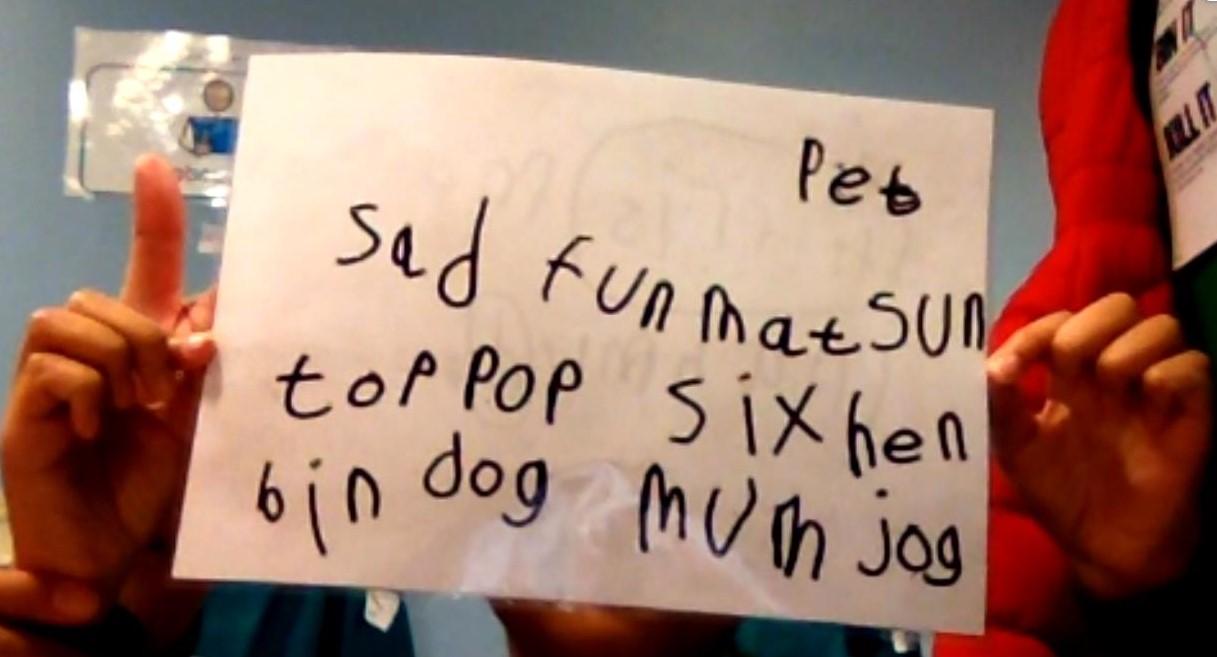 Pet
Sad fun mat SUN
top POP six hen
bin dog MUM jog